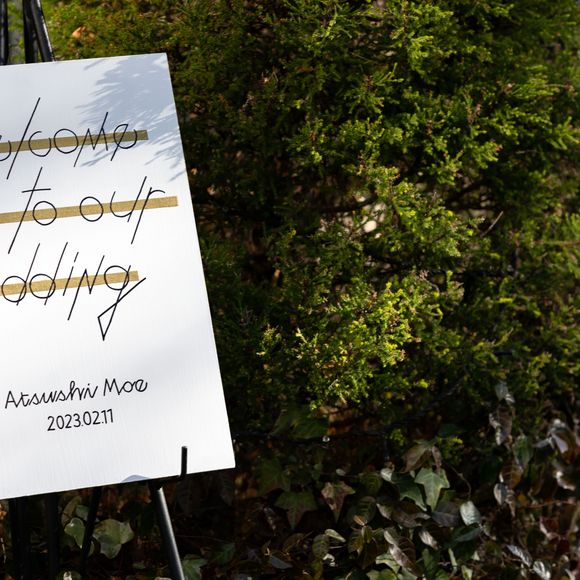 elcome
to our
dding
Atsushi Moe
2023.02.11